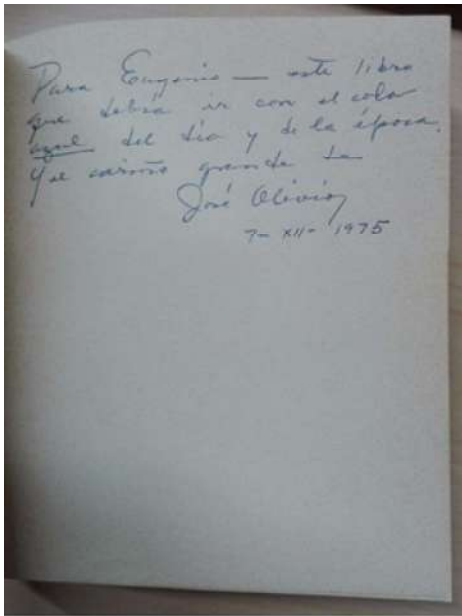 Para Eugenio — este libro
que debía ir con el color
azul del día y de la época.
Y el cariño grande de
José Olivio
7- XII- 1975